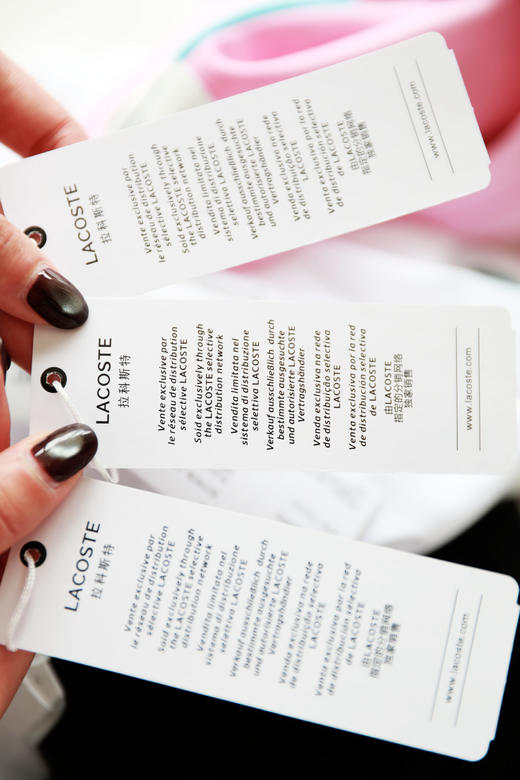 LACOSTE
拉科斯特
Vente exclusive par
le réseau de distribution
sélective LACOSTE
Sold exclusively through
the LACOSTE selective
distribution network
Vendita limitata nel
sistema di distribuzione
selettiva LACOSTE
Verkauf ausschließlich durch
bestimmte ausgesuchte
und autorisierte LACOSTE
Vertragshändler
Venda exclusiva na rede
de distribuição selectiva
LACOSTE
Venta exclusiva por la red
de distribución selectiva
de LACOSTE
由LACOSTE
指定的分销网络
独家销售
www.lacoste.com
LACOSTE
拉科斯特
Vente exclusive par
le réseau de distribution
sélective LACOSTE
Sold exclusively through
the LACOSTE selective
distribution network
Vendita limitata nel
sistema di distribuzione
selettiva LACOSTE
Verkauf ausschließlich durch
bestimmte ausgesuchte
und autorisierte LACOSTE
Vertragshändler
Venda exclusiva na rede
de distribuição selectiva
LACOSTE
Venta exclusiva por la red
de distribución selectiva
de LACOSTE
由LACOSTE
指定的分销网络
独家销售
www.lacoste.com
LACOSTE
拉科斯特
Vente exclusive par
le réseau de distribution
sélective LACOSTE
Sold exclusively through
the LACOSTE selective
distribution network
Vendita limitata nel
sistema di distribuzione
selettiva LACOSTE
Verkauf ausschließlich durch
bestimmte ausgesuchte
und autorisierte LACOSTE
Vertragshändler
Venda exclusiva na rede
de distribuição selectiva
LACOSTE
Venta exclusiva por la red
de distribución selectiva
de LACOSTE
由LACOSTE
指定的分销网络
独家销售
www.lacoste.com